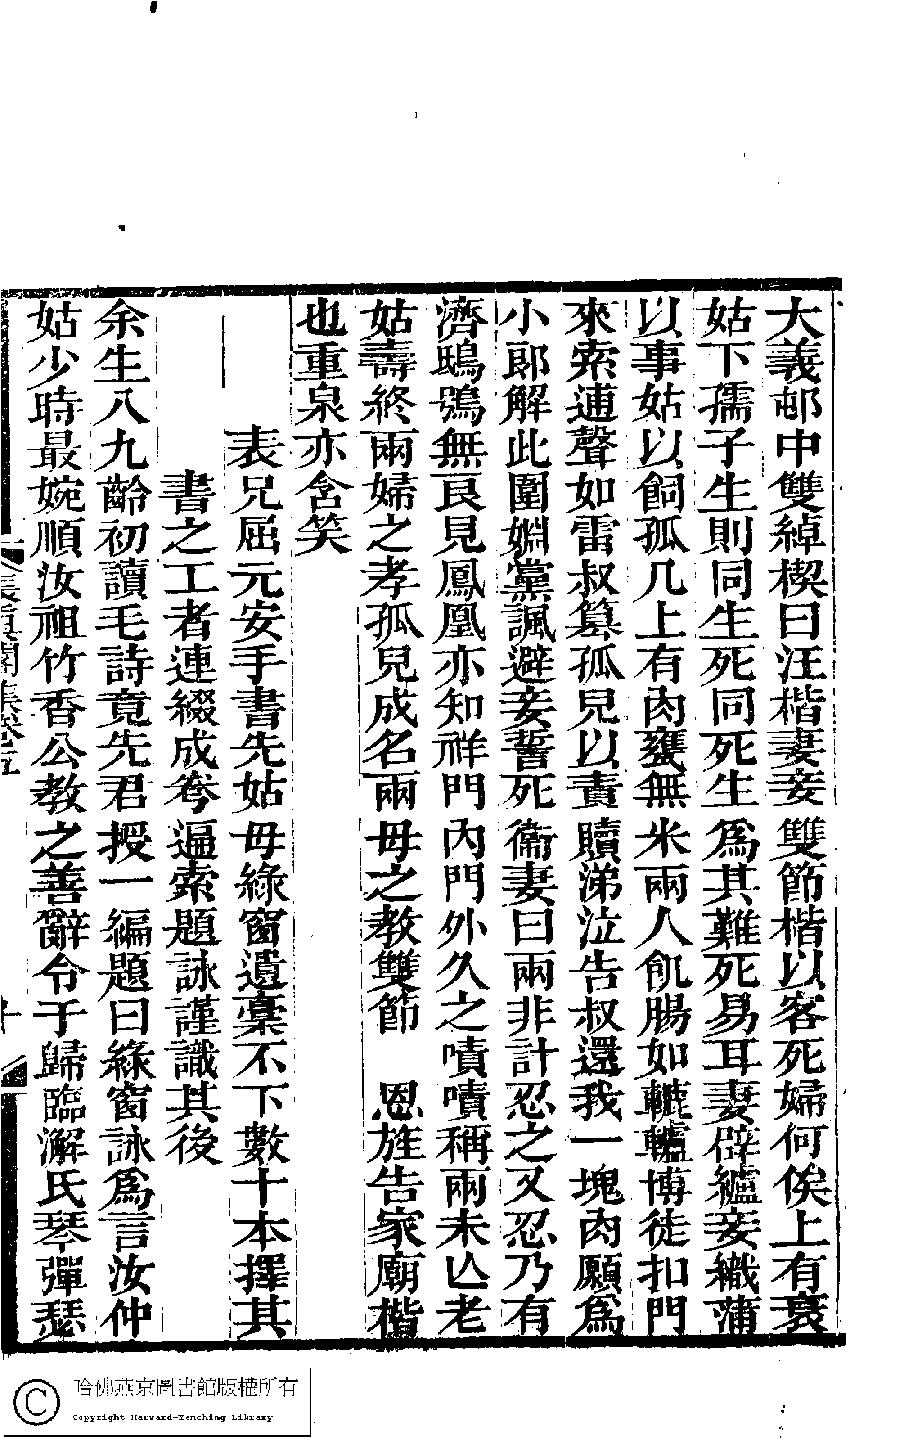 大義邨中雙綽楔曰汪楷妻妾雙節楷以客死婦何俟上有衰
姑下孺子生則同生死同死生爲其難死易耳妻辟纑妾織蒲
以事姑以飼孤几上有肉甕無米兩人飢腸如轆轤博徒扣門
來索逋聲如雷叔篡孤兒以責贖涕泣告叔還我一塊肉願爲
小郎解此圍婣黨諷避妾誓死衞妻曰兩非計忍之又忍乃有
濟鴟鴞無良見鳳凰亦知祥門內門外久之嘖嘖稱兩未亾老
姑壽終兩婦之孝孤兒成名兩母之教雙節 恩旌告家廟楷
也重泉亦含笑
表兄屈元安手書先姑母綠窗遺稾不下數十本擇其
書之工者連綴成卷遍索題詠謹識其後
余生八九齡初讀毛詩竟先君授一編題曰綠窗詠爲言汝仲
姑少時最婉順汝祖竹香公教之善辭令于歸臨澥氏琴彈瑟
長眞閣集卷五
十
哈佛燕京圖書館版權所有
Copyright Harvard-Yenching Library